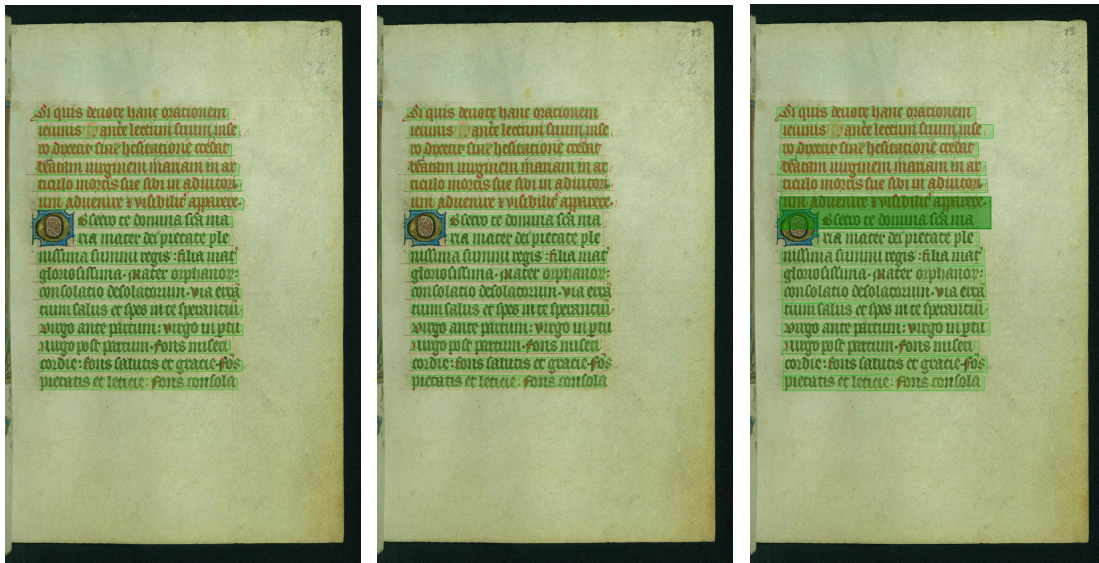 Si quis deuote hanc orationem
ieiunis ante lectum suum
dixerit sine hesitationē credat
beatam uirginem mariam in ar
ticulo mortis sue sibi in adiutori
um aduenire & visibilit' apparere.
Obsecro te domina sc̄a ma
ria mater dei pietate ple
nissima summi regis : filia mat'
gloriosissima. Mater orphanor:
consolatio desolatorum. via errā
tium salus et spes in te sperantiū
virgo ante partum: virgo in p̄tu
virgo post partum. fons miseri
cordie: fons salutis et gracie. fōs
pietatis et leticie: fons consola
Si quis deuote hanc orationem
ieiunis ante lectum suum
dixerit sine hesitationē credat
beatam uirginem mariam in ar
ticulo mortis sue sibi in adiutori
um aduenire & visibilit' apparere.
Obsecro te domina sc̄a ma
ria mater dei pietate ple
nissima summi regis : filia mat'
gloriosissima. Mater orphanor:
consolatio desolatorum. via errā
tium salus et spes in te sperantiū
virgo ante partum: virgo in p̄tu
virgo post partum. fons miseri
cordie: fons salutis et gracie. fōs
pietatis et leticie: fons consola
Si quis deuote hanc orationem
ieiunis ante lectum suum
dixerit sine hesitationē credat
beatam uirginem mariam in ar
ticulo mortis sue sibi in adiutori
um aduenire & visibilit' apparere.
Obsecro te domina sc̄a ma
ria mater dei pietate ple
nissima summi regis : filia mat'
gloriosissima. Mater orphanor:
consolatio desolatorum. via errā
tium salus et spes in te sperantiū
virgo ante partum: virgo in p̄tu
virgo post partum. fons miseri
cordie: fons salutis et gracie. fōs
pietatis et leticie: fons consola